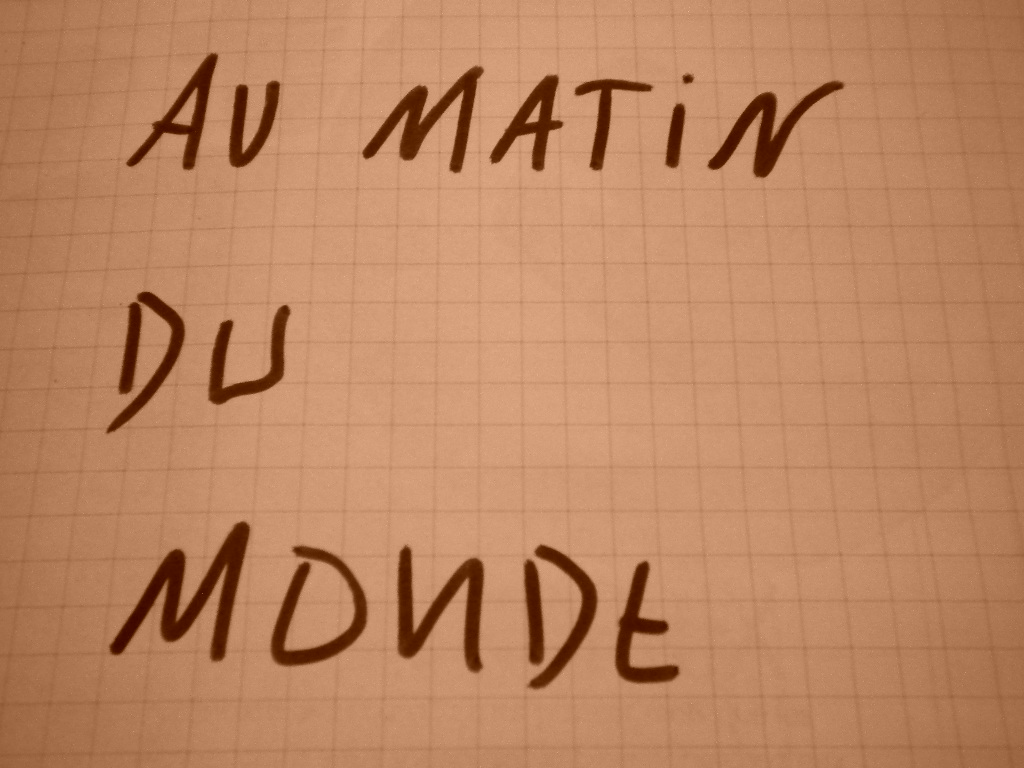 AU MATiN
DU
MONDE